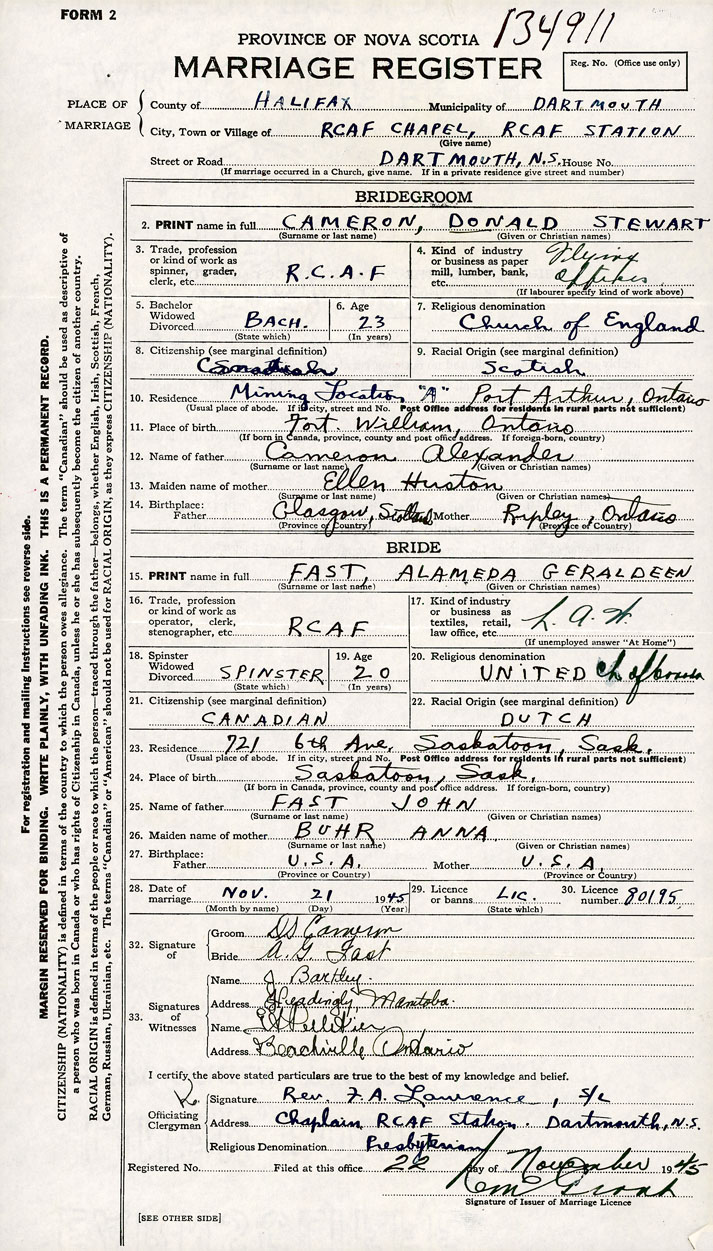 FORM 2
134911
PROVINCE OF NOVA SCOTIA
MARRIAGE REGISTER
Reg. No. (Office use only)
PLACE OF MARRIAGE
County of HALIFAX Municipality of DARTMOUTH
City, Town or Village of RCAF CHAPEL, RCAF STATION
(Give name)
Street or Road DARTMOUTH, N.S. House No.
(If marriage occurred in a Church, give name. If in a private residence give street and number)
BRIDEGROOM
2. PRINT name in full CAMERON, DONALD STEWART
(Surname or last name) (Given or Christian names)
3. Trade, profession or kind of work as spinner, grader, clerk, etc. R.C.A.F
4. Kind of industry or business as paper mill, lumber, bank, etc. Flying Officer
(If labourer specify kind of work above)
5. Bachelor Widowed Divorced BACH. (State which)
6. Age 23 (In years)
7. Religious denomination Church of England
8. Citizenship (see marginal definition) Canadian
9. Racial Origin (see marginal definition) Scotish
10. Residence Mining Location "A" Port Arthur, Ontario
(Usual place of abode. If in city, street and No. Post Office address for residents in rural parts not sufficient)
11. Place of birth Fort. William, Ontario
(If born in Canada, province, county and post office address. If foreign-born, country)
12. Name of father Cameron Alexander
(Surname or last name) (Given or Christian names)
13. Maiden name of mother Ellen Huston
(Surname or last name) (Given or Christian names)
14. Birthplace: Father Glasgow, Scotland Mother Ripley, Ontario
(Province or Country) (Province or Country)
BRIDE
15. PRINT name in full FAST, ALAMEDA GERALDEEN
(Surname or last name) (Given or Christian names)
16. Trade, profession or kind of work as operator, clerk, stenographer, etc. RCAF
17. Kind of industry or business as textiles, retail, law office, etc. L.A.W.
(If unemployed answer "At Home")
18. Spinster Widowed Divorced SPINSTER (State which)
19. Age 20 (In years)
20. Religious denomination UNITED Ch of
21. Citizenship (see marginal definition) CANADIAN
22. Racial Origin (see marginal definition) DUTCH
23. Residence 721 6th Ave, Saskatoon, Sask.
(Usual place of abode. If in city, street and No. Post Office address for residents in rural parts not sufficient)
24. Place of birth Saskatoon, Sask,
(If born in Canada, province, county and post office address. If foreign-born, country)
25. Name of father FAST JOHN
(Surname or last name) (Given or Christian names)
26. Maiden name of mother BUHR ANNA
(Surname or last name) (Given or Christian names)
27. Birthplace: Father U.S.A. Mother U.S.A.
(Province or Country) (Province or Country)
28. Date of marriage NOV. 21 1945
(Month by name) (Day) (Year)
29. Licence or banns LIC. (State which)
30. Licence number 80195
32. Signature of
Groom DS Cameron
Bride A.G. Fast
33. Signatures of Witnesses
Name J Bartley.
Address Headingly Manitoba.
Name Pelletier
Address Beachville Ontario
I certify the above stated particulars are true to the best of my knowledge and belief.
Officiating Clergyman
Signature Rev. F.A. Lawrence, S/L
Address Chaplain, RCAF Station. Dartmouth, N.S.
Religious Denomination Presbyterian
Registered No. Filed at this office 22 day of November 1945
Grant
Signature of Issuer of Marriage Licence
[SEE OTHER SIDE]
For registration and mailing instructions see reverse side.
MARGIN RESERVED FOR BINDING. WRITE PLAINLY, WITH UNFADING INK. THIS IS A PERMANENT RECORD.
CITIZENSHIP (NATIONALITY) is defined in terms of the country to which the person owes allegiance. The term "Canadian" should be used as descriptive of
a person who was born in Canada or who has rights of Citizenship in Canada, unless he or she has subsequently become the citizen of another country.
RACIAL ORIGIN is defined in terms of the people or race to which the person—traced through the father—belongs, whether English, Irish, Scottish, French,
German, Russian, Ukrainian, etc. The terms "Canadian" or "American" should not be used for RACIAL ORIGIN, as they express CITIZENSHIP (NATIONALITY).